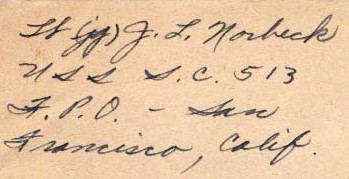 Lt (jg) J. L. Norbeck
USS S.C. 513
F.P.O. - San
Francisco, Calif.